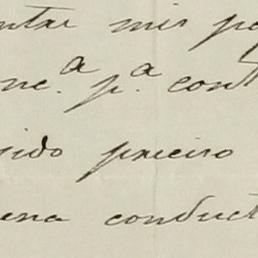 ntar mis pa
nc.ª p.ª cont
gido preciso
ena conduct